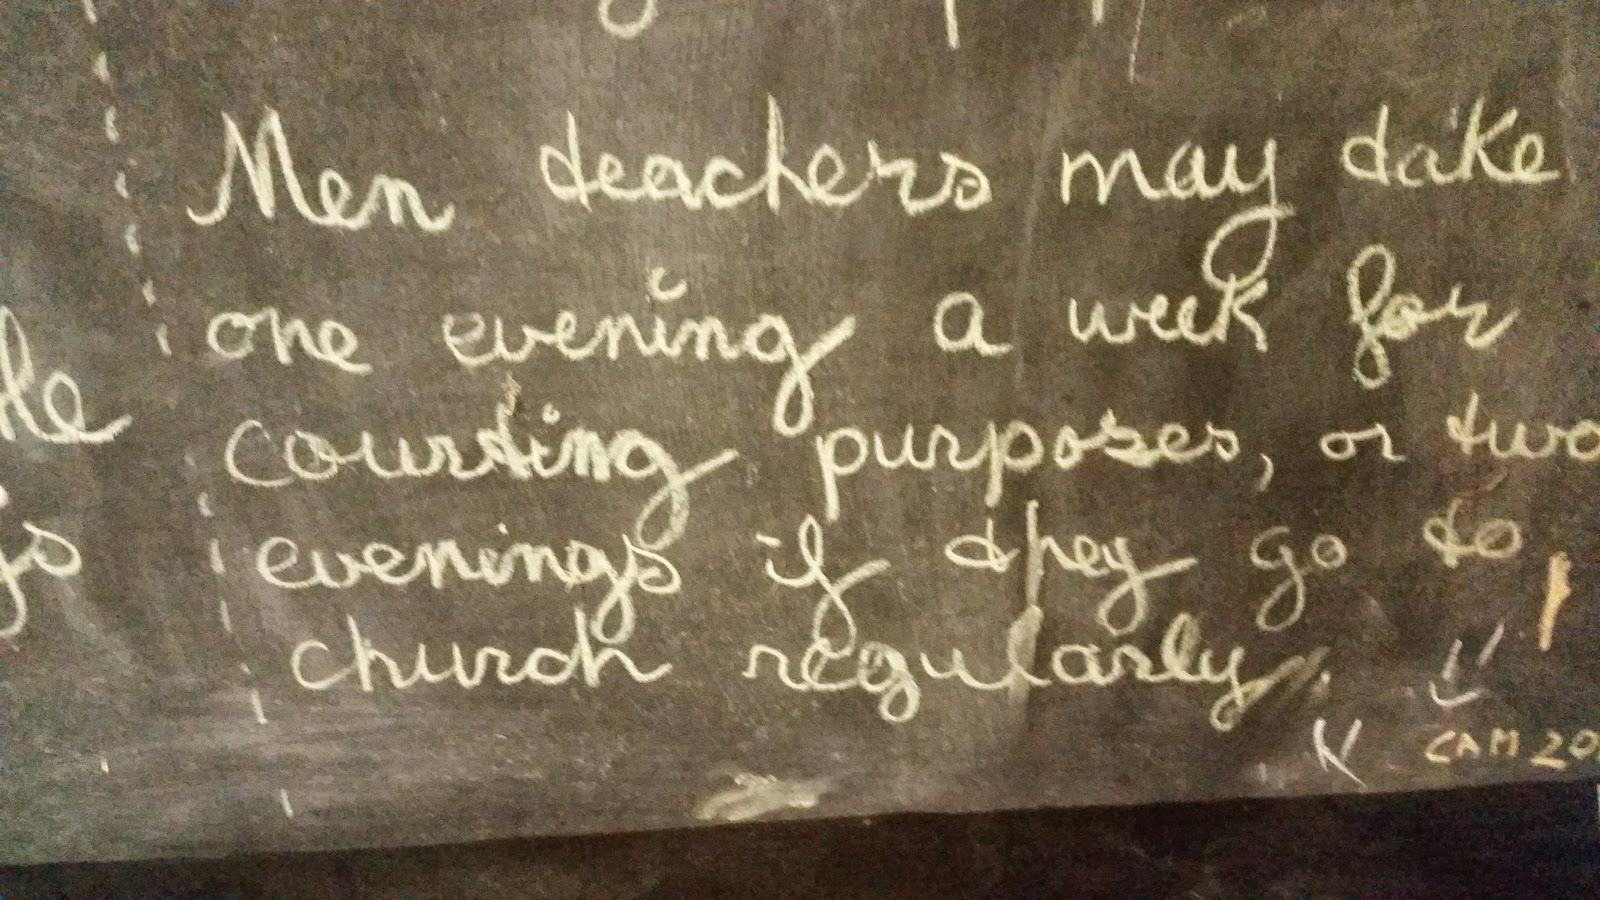 Men teachers may take
one evening a week for
courting purposes, or two
evenings if they go to
church regularly.
CAM 20